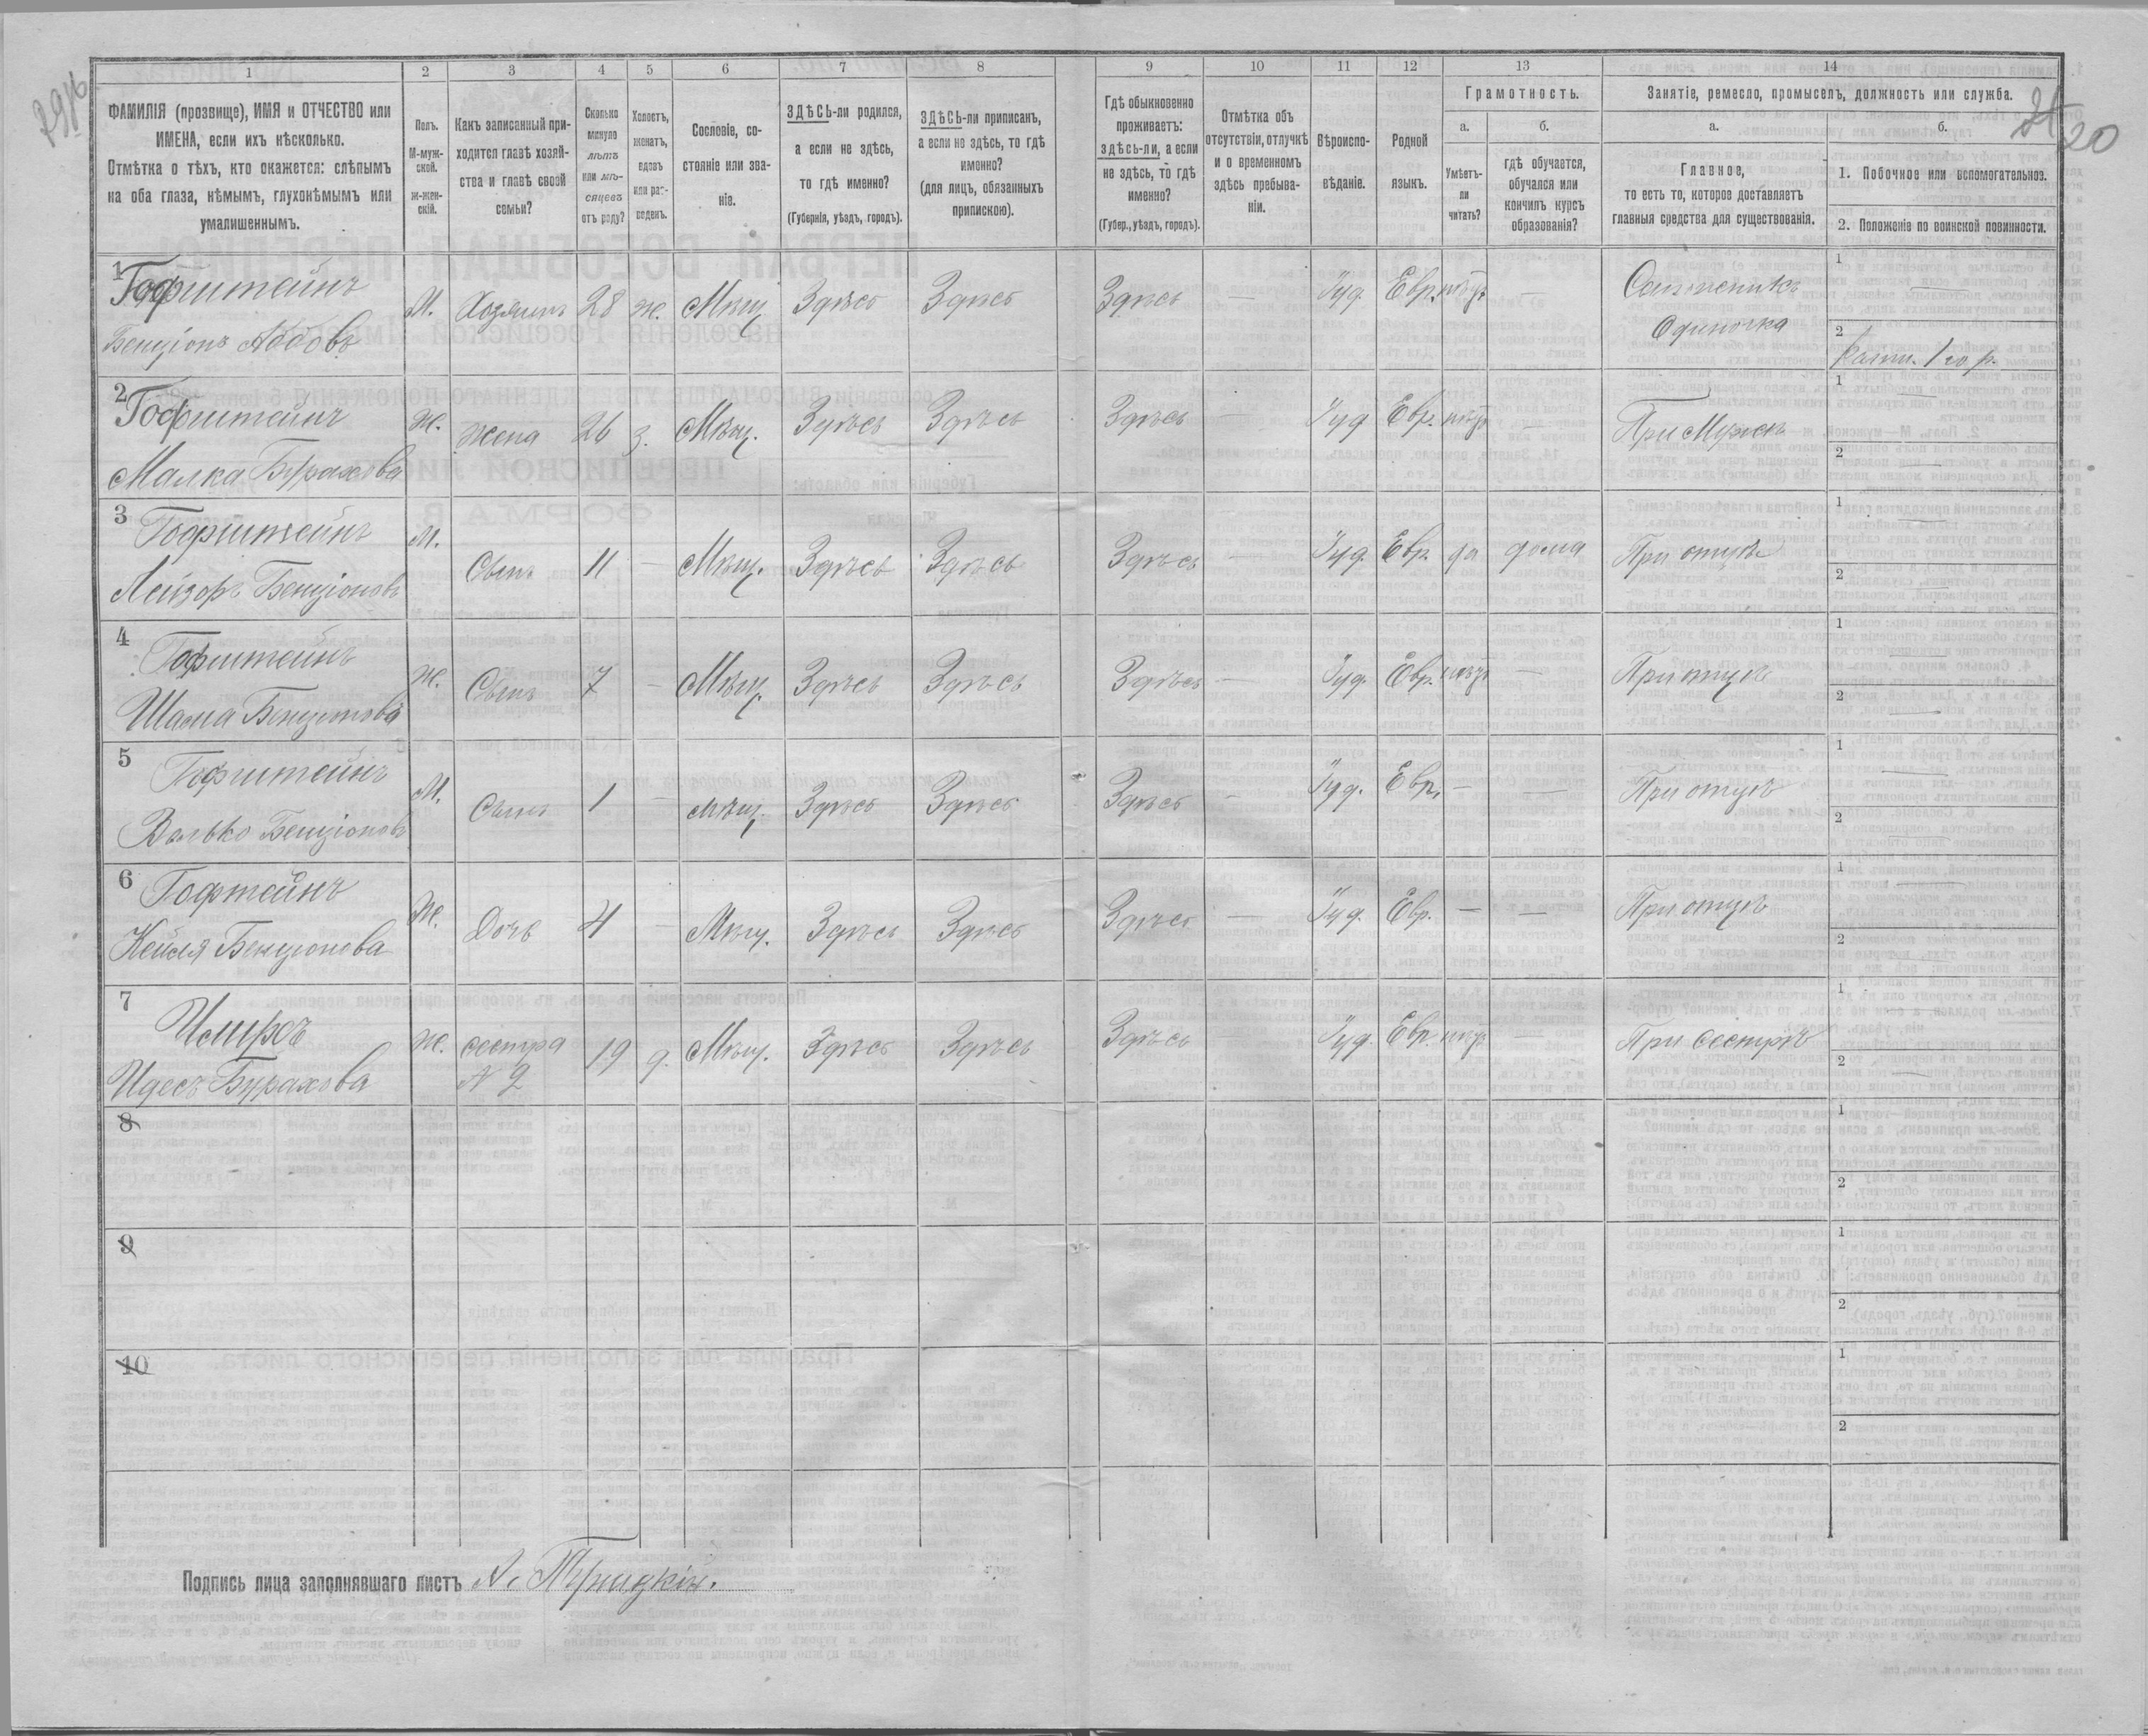 1 2 3 4 5 6 7 8 9 10 11 12 13 14
ФАМИЛІЯ (прозвище), ИМЯ и ОТЧЕСТВО или
ИМЕНА, если ихъ нѣсколько.
Отмѣтка о тѣхъ, кто окажется: слѣпымъ
на оба глаза, нѣмымъ, глухонѣмымъ или
умалишеннымъ.
Полъ.
М-муж-
ской.
ж-жен-
скій.
Какъ записанный при-
ходится главѣ хозяй-
ства и главѣ своей
семьи?
Сколько
минуло
лѣтъ
или мѣ-
сяцевъ
отъ роду?
Холостъ,
женатъ,
вдовъ
или раз-
веденъ.
Сословіе, со-
стояніе или зва-
ніе.
ЗДѢСЬ-ли родился,
а если не здѣсь,
то гдѣ именно?
(Губернія, уѣздъ, городъ).
ЗДѢСЬ-ли приписанъ,
а если не здѣсь, то гдѣ
именно?
(для лицъ, обязанныхъ
припискою).
Гдѣ обыкновенно
проживаетъ:
здѣсь-ли, а если
не здѣсь, то гдѣ
именно?
(Губер., уѣздъ, городъ).
Отмѣтка объ
отсутствіи, отлучкѣ
и о временномъ
здѣсь пребыва-
ніи.
Вѣроиспо-
вѣданіе.
Родной
языкъ.
Грамотность.
а.
Умѣетъ-
ли
читать?
б.
гдѣ обучается,
обучался или
кончилъ курсъ
образованія?
Занятіе, ремесло, промыселъ, должность или служба.
а.
Главное,
то есть то, которое доставляетъ
главныя средства для существованія.
б.
1. Побочное или вспомогательное.
2. Положеніе по воинской повинности.
20
1 Гофштейнъ М. Хозяинъ 28 ж. Мѣщ. Здѣсь Здѣсь Здѣсь — Іуд. Евр. нѣтъ — Сапожникъ 1 —
Бенціонъ Абовъ Одиночка 2
2 Гофштейнъ Ж. Жена 26 з. Мѣщ. Здѣсь Здѣсь Здѣсь — Іуд. Евр. нѣтъ — При Мужѣ 1 —
Малка Бурахова 2 —
3 Гофштейнъ М. Сынъ 11 — Мѣщ. Здѣсь Здѣсь Здѣсь — Іуд. Евр. да дома При отцѣ 1 —
Лейзоръ Бенціоновъ 2 —
4 Гофштейнъ Ж. Сынъ 7 — Мѣщ. Здѣсь Здѣсь Здѣсь — Іуд. Евр. нѣтъ — При отцѣ 1 —
Бенціонова 2 —
5 Гофштейнъ М. Сынъ 1 — Мѣщ. Здѣсь Здѣсь Здѣсь — Іуд. Евр. — — При отцѣ 1 —
Велько Бенціоновъ 2 —
6 Гофтейнъ Ж. Дочь 4 — Мѣщ. Здѣсь Здѣсь Здѣсь — Іуд. Евр. — — При отцѣ 1 —
Бенціонова 2 —
7 Ж. сестра 19 д. Мѣщ. Здѣсь Здѣсь Здѣсь Іуд. Евр. нѣтъ — При сестрѣ 1 —
Идесъ Бурахова № 2 2 —
8 1
2
9 1
2
10 1
2
Подпись лица заполнявшаго листъ